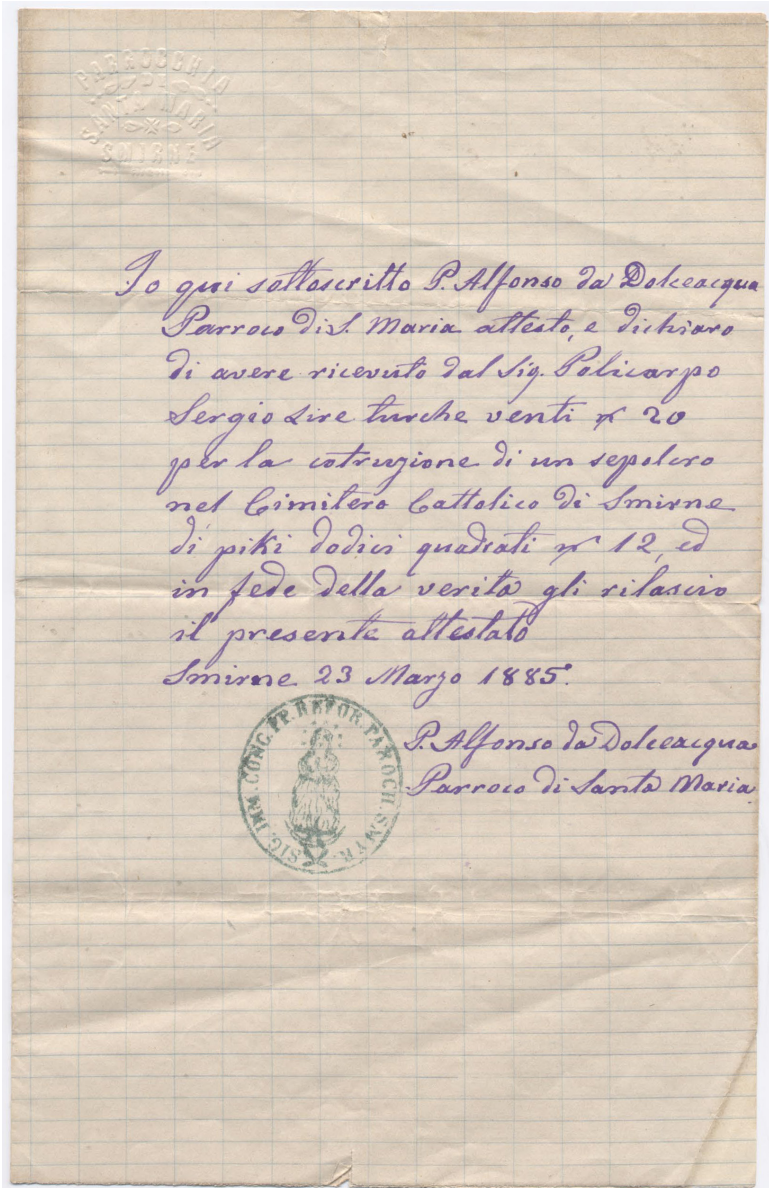 PARROCCHIA
DI
SANTA MARIA
SMIRNE
Io qui sottoscritto P. Alfonso da Dolceacqua
Parroco di S. Maria attesto, e dichiaro
di avere ricevuto dal Sig. Policarpo
Sergio Lire turche venti n° 20
per la cotruzione di un sepolcro
nel Cimitero Cattolico di Smirne
di piki dodici quadrati n° 12, ed
in fede della verità gli rilascio
il presente attestato
Smirne 23 Marzo 1885.
P. Alfonso da Dolceacqua
Parroco di Santa Maria
SIG. IMM. CONC. PP. REFOR. PAROCH. SMYR.